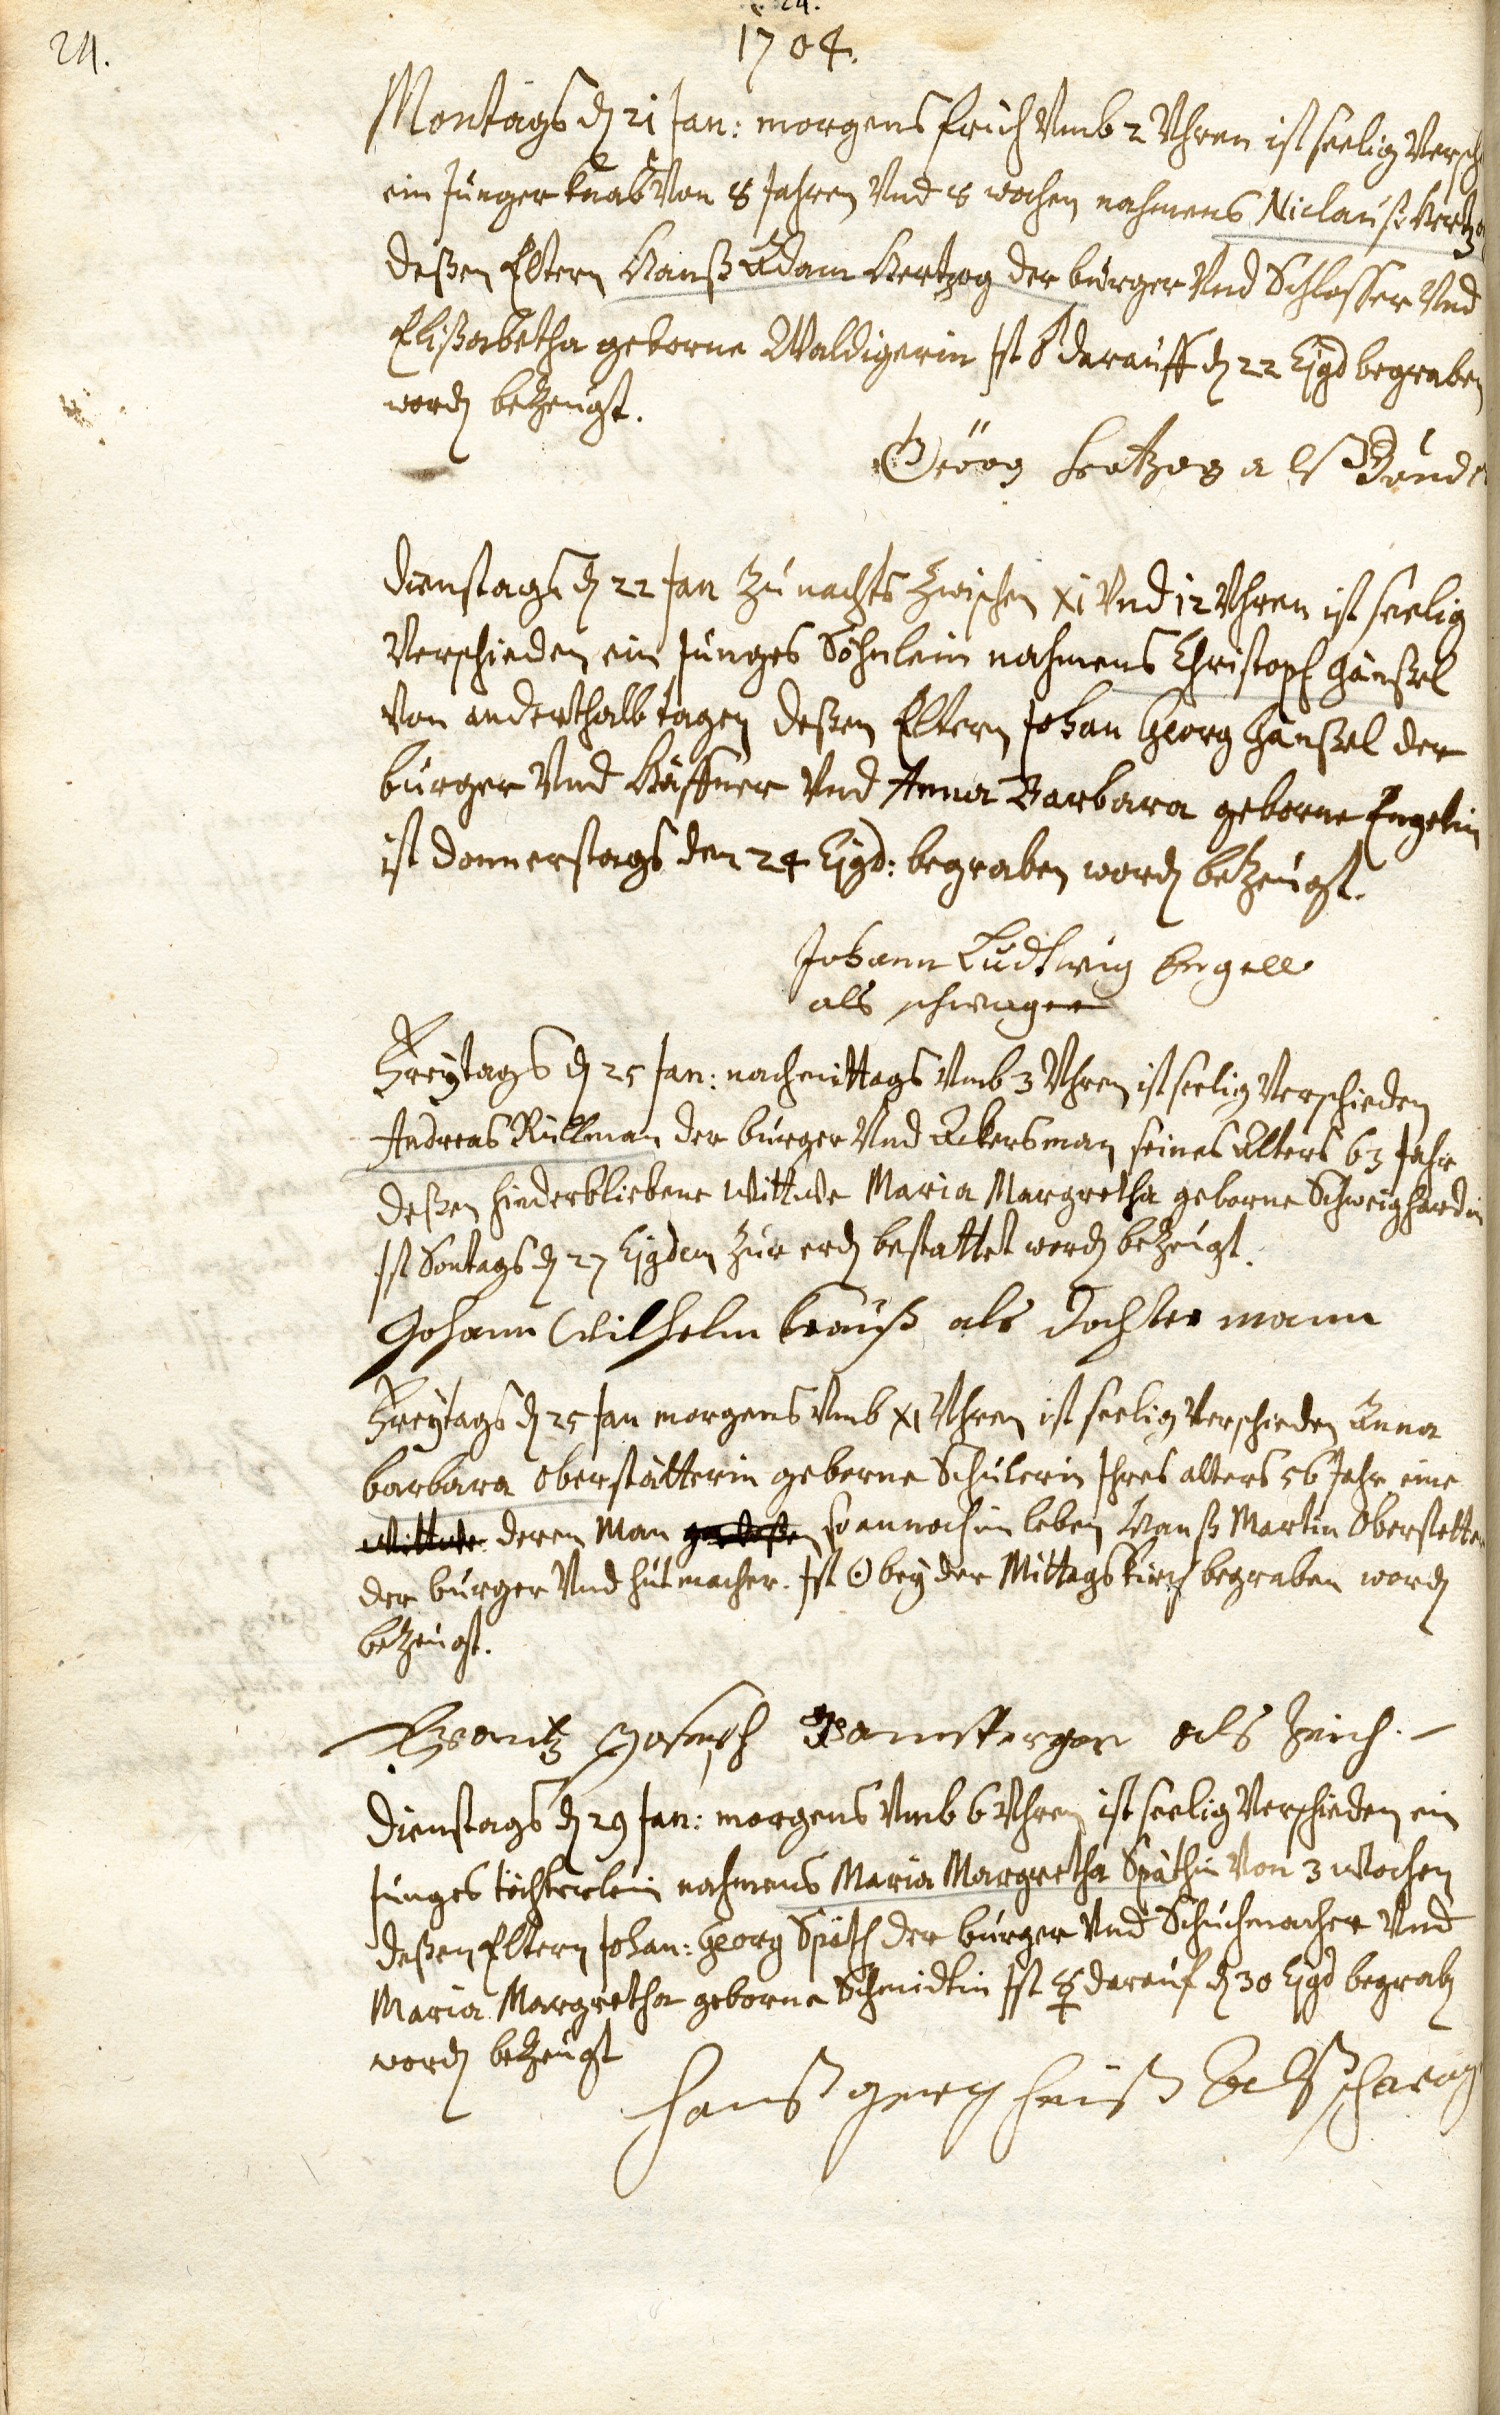 24.
24.
1704.
Montags d 21 Jan: morgens früh Vmb 2 Vhren ist seelig Versch
ein Junger knab Von 8 Jahren Vnd 8 wochen nahmens Niclauß Hertzo
deßen Eltern Hanß Adam Hertzog der burger Vnd Schlosser Vnd
Elisabetha geborne Waldigerin Jst ♂ darauff d 22 Ejgd begraben
word bezeugt.
Geörg Hertzog alß
Dienstags d 22 Jan Zu nachts Zwischen XI Vnd 12 Vhren ist seelig
Verschieden ein Junges Söhnlein nahmens Christoph Hänßel
Von anderthalb tagen deßen Eltern Johan Georg Hänßel der
burger Vnd Häffner Vnd Anna Barbara geborne Engelin
ist Donnerstags den 24 Ejgd: begraben word bezeugt.
Johann Ludtwig Engell
als schwager
Freytags d 25 Jan: nachmittags Vmb 3 Vhren ist seelig Verschieden
Andreas Rullman der burger Vnd Ackersman seines Alters 63 Jahr
deßen hinderbliebene Wittwe Maria Margretha geborne Schweighardin
Jst Sontags d 27 Ejgdem Zur erd bestattet word bezeugt.
Johann Wilhelm Krauß als dochter mann
Freytags d 25 Jan morgens Vmb XI Vhren ist seelig Verschieden Anna
barbara Oberstätterin geborne Schulerin Jhres alters 56 Jahr eine
Wittwe deren Man so annoch im leben Hanß Martin Oberstette
der burger Vnd hutmacher. Jst ☉ bey der Mittagskirch begraben word
bezeugt.
Frantz Joseph als
Dienstags d 29 Jan: morgens Vmb 6 Vhren ist seelig Verschieden ein
Junges töchterlein nahmens Maria Margretha Späthin Von 3 Wochen
deßen Eltern Johan: Georg Späth der burger Vnd Schuhmacher Vnd
Maria Margretha geborne Schmidtin Jst ☿ darauf d 30 Ejgd begrab
word bezeugt
Hanß georg Heuß alß schwag